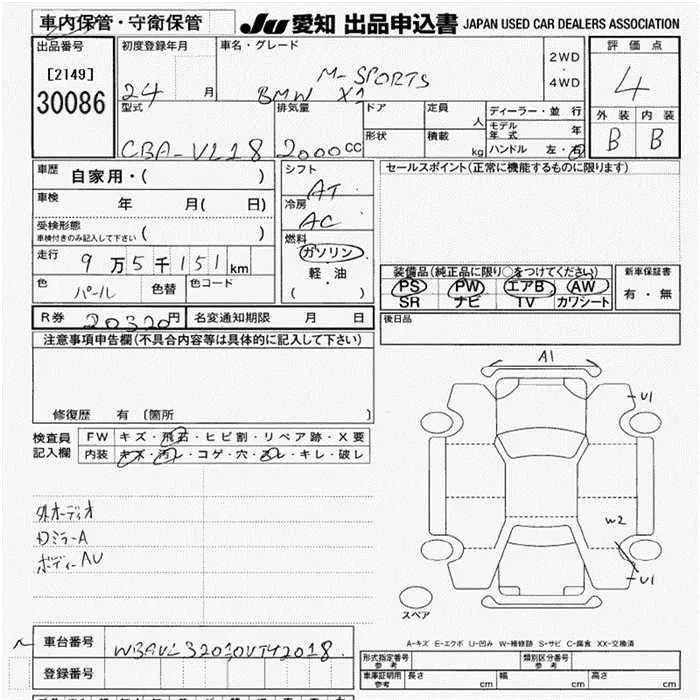 車内保管・守衛保管
JU 愛知 出品申込書 JAPAN USED CAR DEALERS ASSOCIATION
出品番号
[2149]
30086
初度登録年月
24 月
車名・グレード
M-SPORTS
BMW X1
2WD
・
4WD
評価点
4
外装 内装
B B
型式
CBA-VL18
排気量
2000cc
ドア
定員
人
形状
積載
kg
ディーラー・並行
モデル年式 年
ハンドル 左・右
車歴
自家用・( )
車検
年 月( 日)
受検形態
車検付きのみ記入して下さい ( )
走行
9万5千151km
色
パール
色替
色コード
シフト
AT
冷房
AC
燃料
ガソリン
軽・油
( )
セールスポイント(正常に機能するものに限ります)
装備品(純正品に限り○をつけてください)
PS PW エアB AW
SR ナビ TV カワシート
新車保証書
有・無
R券 20320円
名変通知期限 月 日
後日品
注意事項申告欄(不具合内容等は具体的に記入して下さい)
修復歴 有 〔箇所 〕
検査員
記入欄
FW キズ・飛石・ヒビ割・リペア跡・X要
内装 キズ・汚レ・コゲ・穴・スレ・キレ・破レ
外オーディオ
ミラーA
ボディーAU
A1
U1
W2
U1
スペア
A-キズ E-エクボ U-凹み W-補修跡 S-サビ C-腐食 XX-交換済
車台番号
登録番号
形式指定番号
参考
類別区分番号
参考
車庫証明用
参考
長さ cm
幅 cm
高さ cm